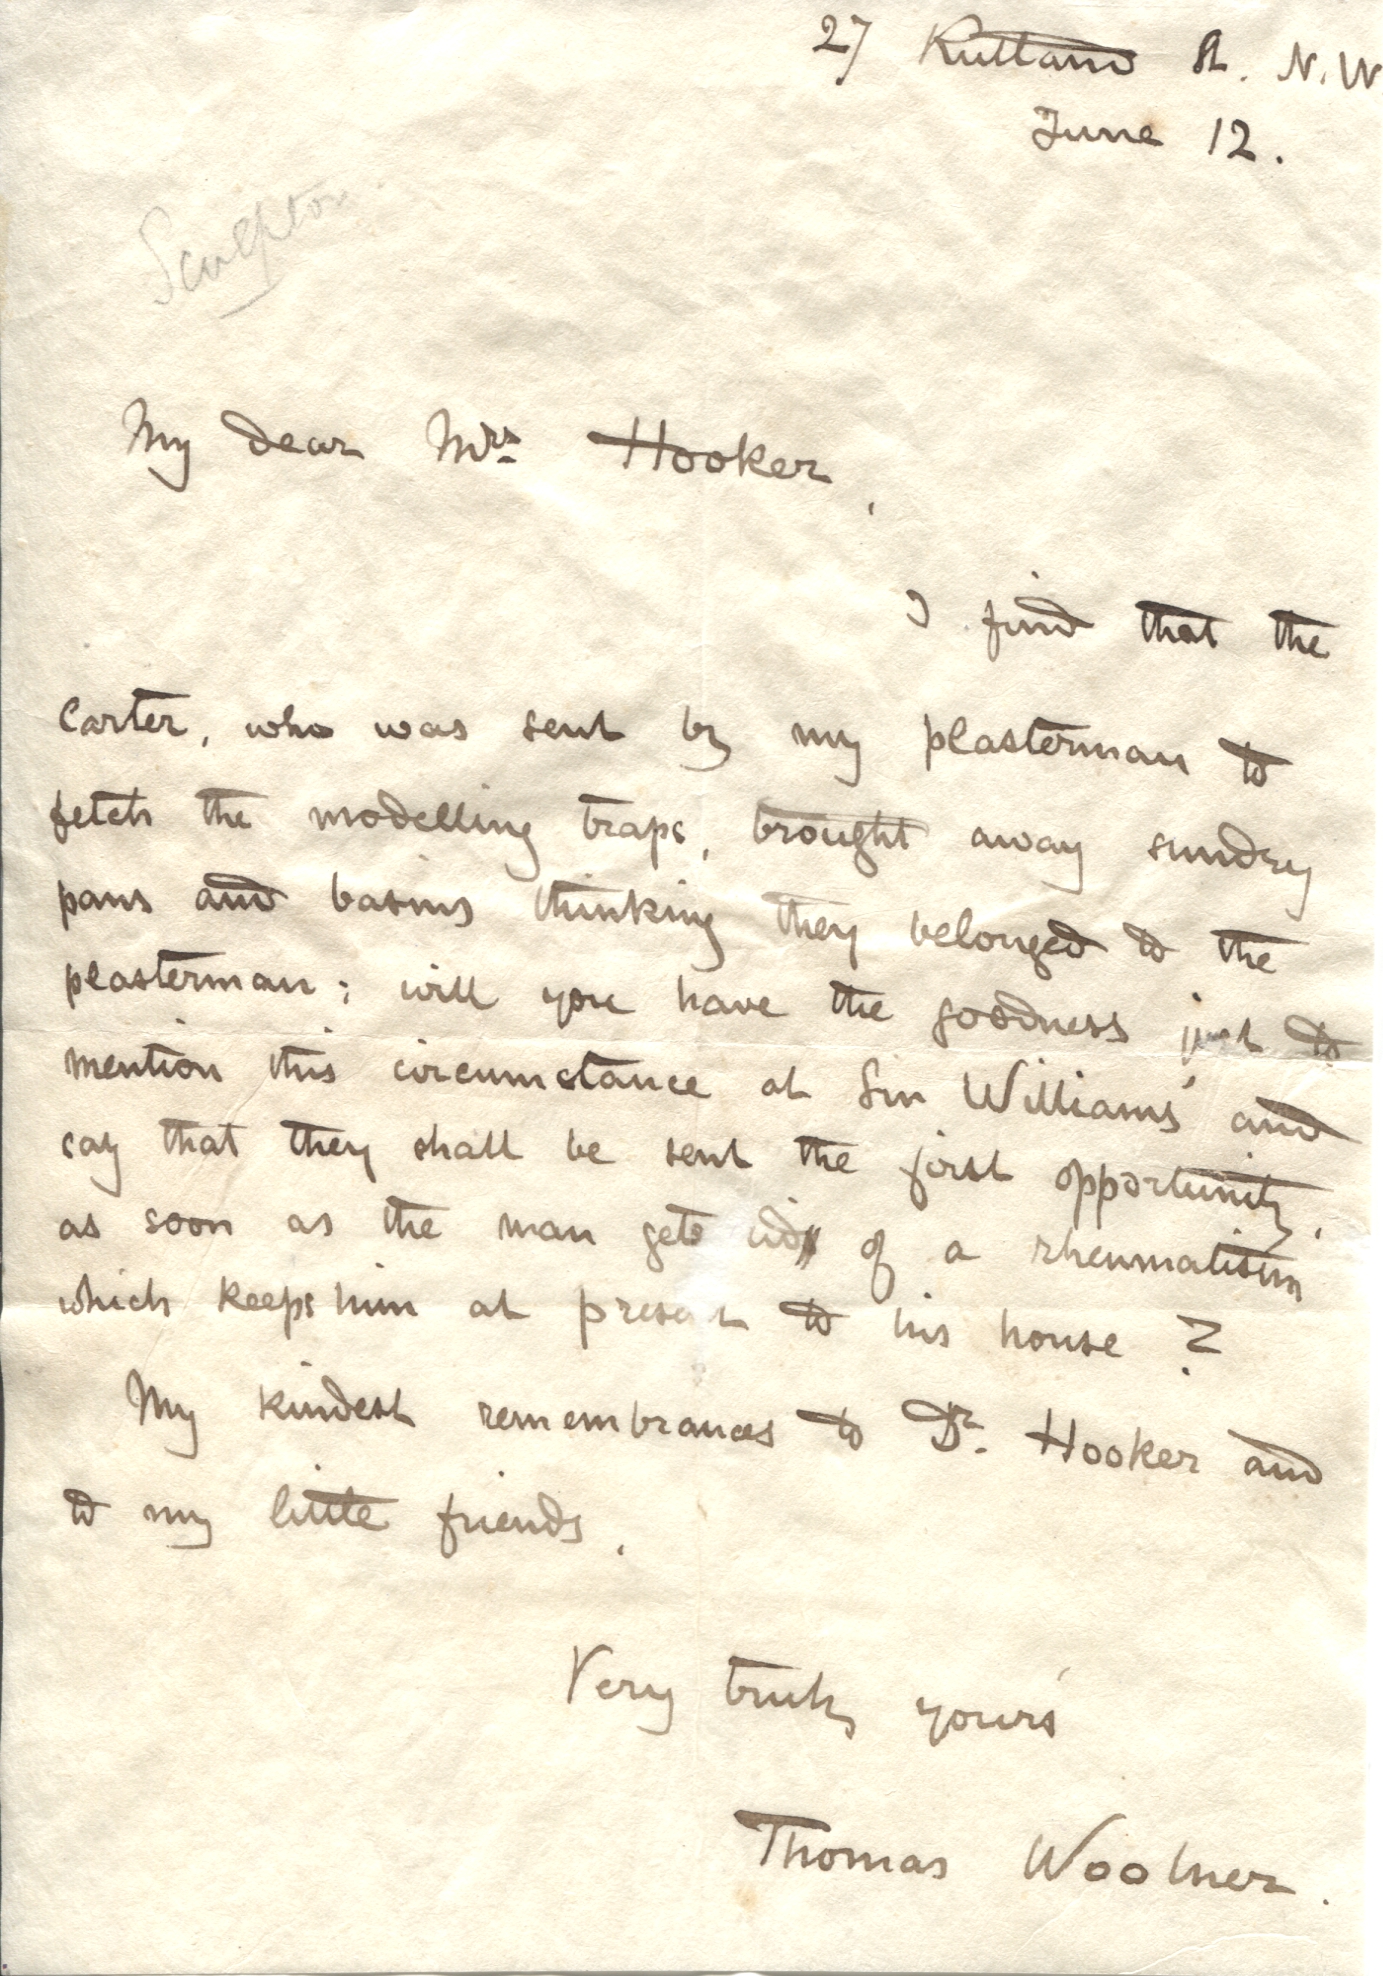 27 Rutland St. N.W.
June 12.
Sculptor
My dear Mrs. Hooker,
I find that the
carter, who was sent by my plasterman to
fetch the modelling traps, brought away sundry
pans and basins thinking they belonged to the
plasterman; will you have the goodness just to
mention this circumstance at Sir Williams' and
say that they shall be sent the first opportunity,
as soon as the man gets rid of a rheumatism
which keeps him at present to his house?
My kindest remembrances to Dr. Hooker and
to my little friends.
Very truly yours
Thomas Woolner.